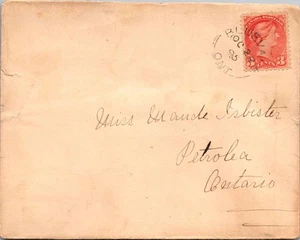 OC 2
ONT.
3
Miss Maude Isbister
Petrolea
Ontario